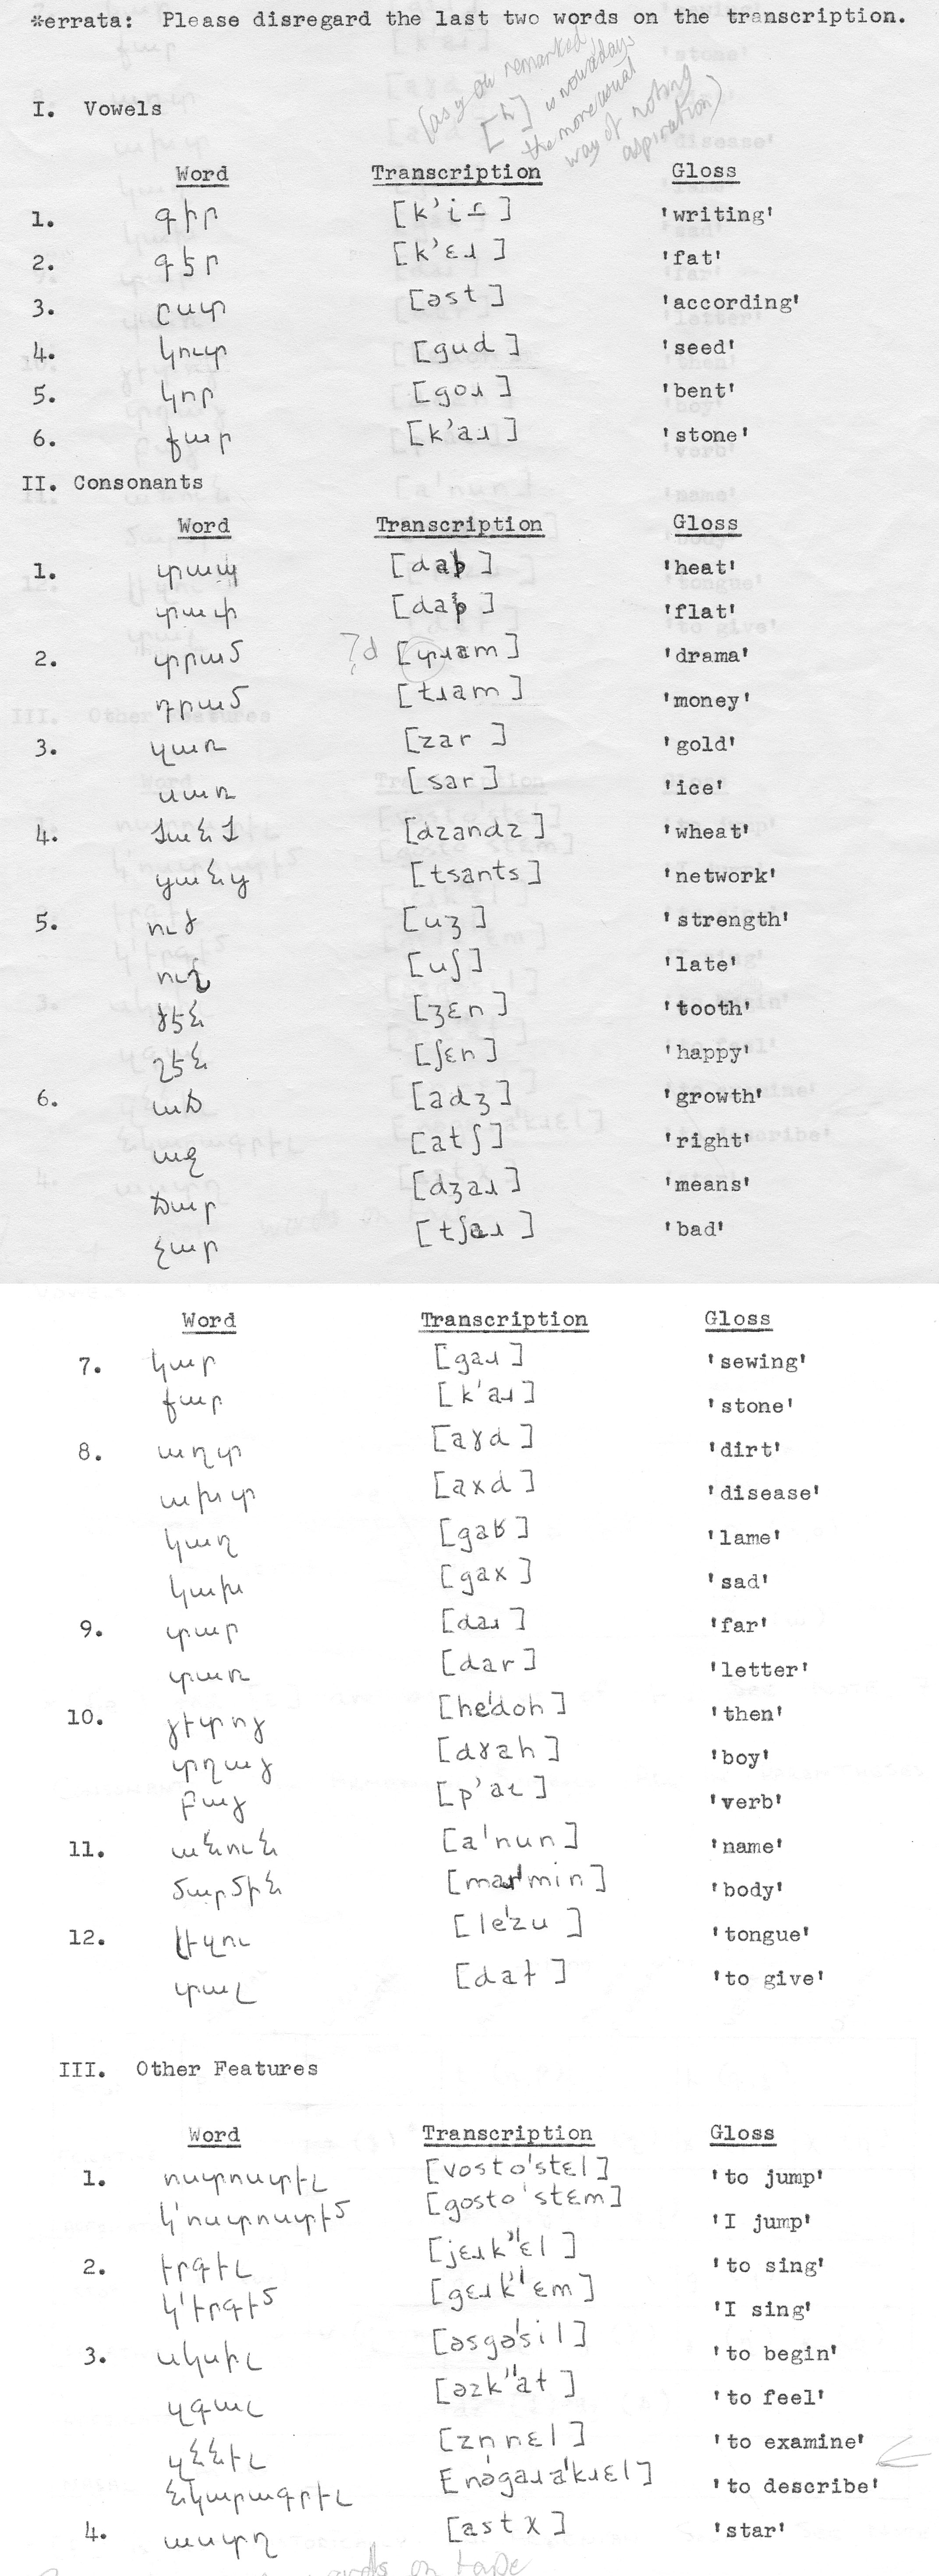 *errata: Please disregard the last two words on the transcription.
(as you remarked
[ʰ] is nowadays
the more usual
way of noting
aspiration)
I. Vowels
Word Transcription Gloss
1. գիր [k'iɹ] 'writing'
2. գէր [k'ɛɹ] 'fat'
3. ըստ [əst] 'according'
4. կուտ [gud] 'seed'
5. կոր [goɹ] 'bent'
6. քար [k'aɹ] 'stone'
II. Consonants
Word Transcription Gloss
1. տապ [dab] 'heat'
տափ [dap] 'flat'
2. տրամ ?d [տɹam] 'drama'
դրամ [tɹam] 'money'
3. զառ [zar] 'gold'
սառ [sar] 'ice'
4. ձանձ [dzandz] 'wheat'
ցանց [tsants] 'network'
5. ուժ [uʒ] 'strength'
ուշ [uʃ] 'late'
ժէն [ʒɛn] 'tooth'
շէն [ʃɛn] 'happy'
6. աճ [adʒ] 'growth'
աջ [atʃ] 'right'
ճար [dʒaɹ] 'means'
չար [tʃaɹ] 'bad'
Word Transcription Gloss
7. կար [gaɹ] 'sewing'
քար [k'aɹ] 'stone'
8. աղտ [aɣd] 'dirt'
ախտ [axd] 'disease'
կաղ [gaʁ] 'lame'
կախ [gax] 'sad'
9. տար [daɹ] 'far'
տառ [dar] 'letter'
10. յետոյ [he'doh] 'then'
տղայ [dɣah] 'boy'
բայ [p'aɪ] 'verb'
11. անուն [a'nun] 'name'
մարմին [maɹ'min] 'body'
12. լեզու [le'zu] 'tongue'
տալ [daɫ] 'to give'
III. Other Features
Word Transcription Gloss
1. ոստոստել [vosto'stɛl] 'to jump'
կ'ոստոստեմ [gosto'stɛm] 'I jump'
2. երգել [jɛɹk''ɛl] 'to sing'
կ'երգեմ [gɛɹk''ɛm] 'I sing'
3. սկսիլ [əsgə'sil] 'to begin'
զգալ [əzk''aɫ] 'to feel'
զննել [zn̩nɛl] 'to examine'
նկարագրել [nəgaɹa'kɹɛl] 'to describe'
4. աստղ [astχ] 'star'
words on tape